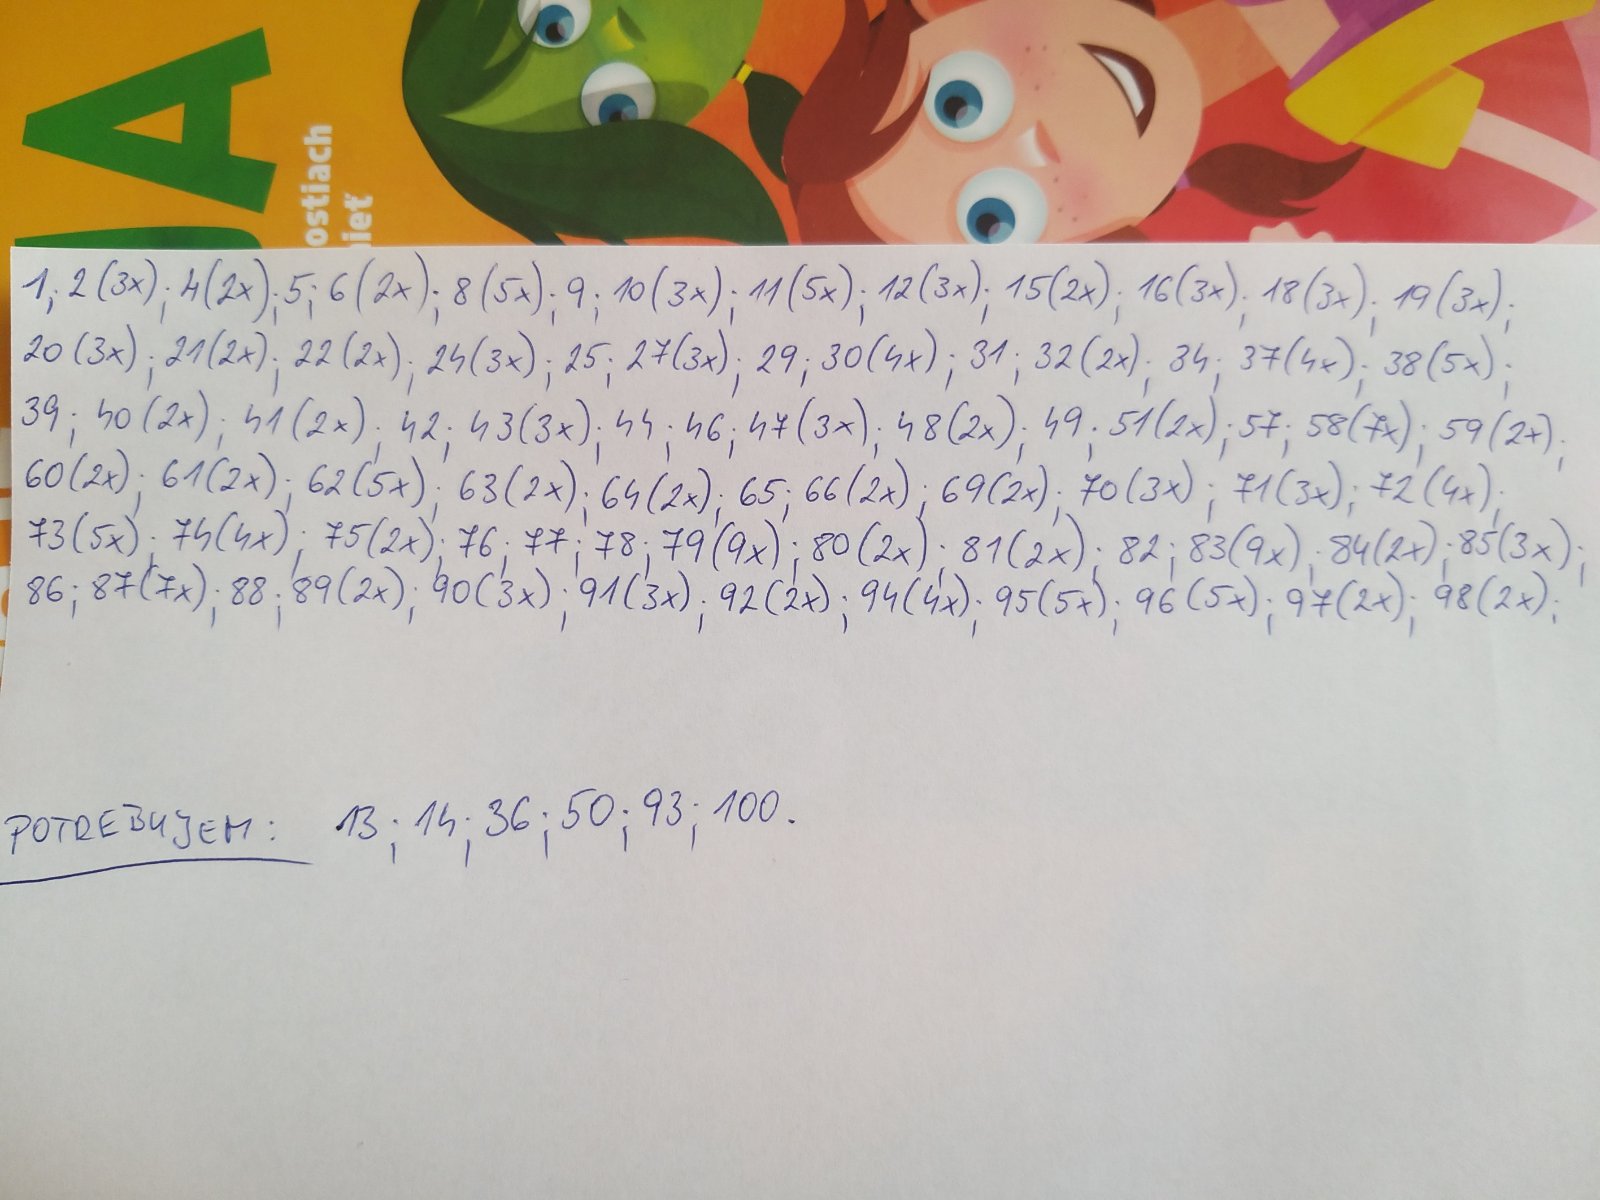 JA
ostiach
nieť
1; 2(3x); 4(2x); 5; 6(2x); 8(5x); 9; 10(3x); 11(5x); 12(3x); 15(2x); 16(3x); 18(3x); 19(3x);
20(3x); 21(2x); 22(2x); 24(3x); 25; 27(3x); 29; 30(4x); 31; 32(2x); 34; 37(4x); 38(5x);
39; 40(2x); 41(2x); 42; 43(3x); 44; 46; 47(3x); 48(2x); 49; 51(2x); 57; 58(7x); 59(2x);
60(2x); 61(2x); 62(5x); 63(2x); 64(2x); 65; 66(2x); 69(2x); 70(3x); 71(3x); 72(4x);
73(5x); 74(4x); 75(2x); 76; 77; 78; 79(9x); 80(2x); 81(2x); 82; 83(9x); 84(2x); 85(3x);
86; 87(7x); 88; 89(2x); 90(3x); 91(3x); 92(2x); 94(4x); 95(5x); 96(5x); 97(2x); 98(2x);
POTREBUJEM: 13; 14; 36; 50; 93; 100.